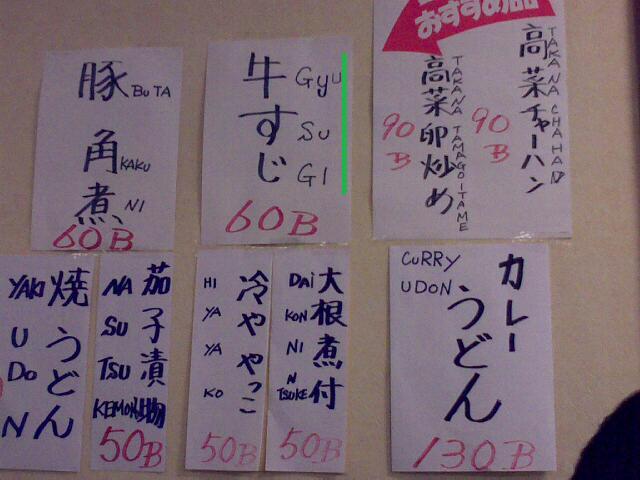 豚角煮
BUTA
KAKU
NI
60B
牛すじ
Gyu
SU
GI
60B
おすすめ品
高菜チャーハン
TAKANA CHAHAN
90
B
高菜卵炒め
TAKANA TAMAGOITAME
90
B
焼うどん
YAKI
U
DO
N
茄子漬物
NA
SU
TSU
KEMONO
50B
冷ややっこ
HI
YA
YA
KO
50B
大根煮付
DAI
KON
NI
N
TSUKE
50B
カレーうどん
CURRY
UDON
130B